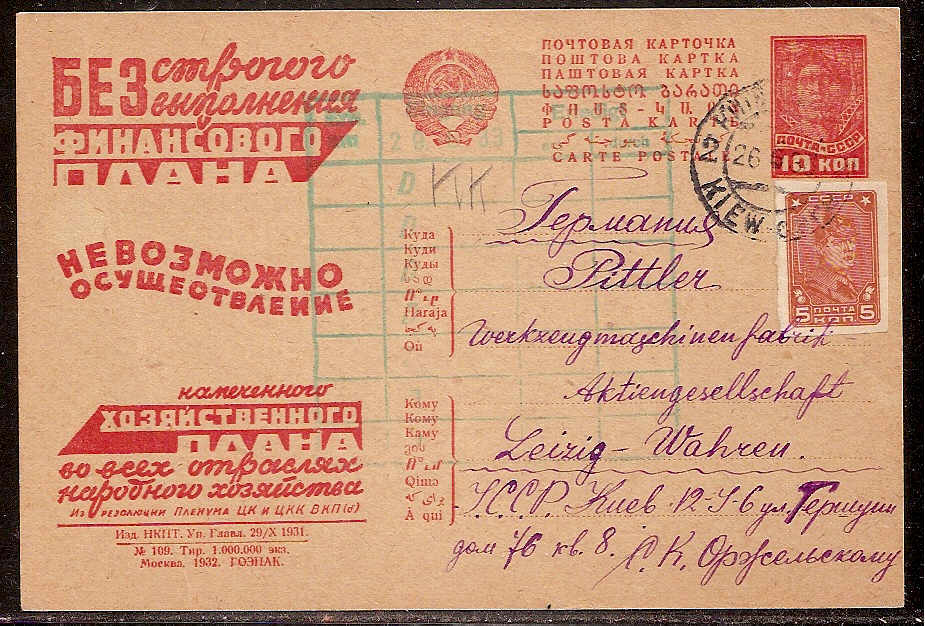 БЕЗ строгого
выполнения
ФИНАНСОВОГО
ПЛАНА
НЕВОЗМОЖНО
ОСУЩЕСТВЛЕНИЕ
намеченного
ХОЗЯЙСТВЕННОГО
ПЛАНА
во всех отраслях
народного хозяйства
Из резолюции Пленума ЦК и ЦКК ВКП(б)
Изд. НКПТ. Уп. Главл. 29/X 1931.
№ 109. Тир. 1.000.000 экз.
Москва, 1932. ГОЗНАК.
ПОЧТОВАЯ КАРТОЧКА
ПОШТОВА КАРТКА
ПАШТОВАЯ КАРТКА
ᲡᲐᲤᲝᲡᲢᲝ ᲑᲐᲠᲐᲗᲘ
CARTE POSTALE
ПОЧТА СССР
10 КОП
26
KIEW
СССР
ПОЧТА
5 КОП 5
KK
Куда
Куди
Куды
Haraja
Où
Кому
Кому
Каму
Qimə
À qui
Германия
Pittler
Werkzeugmaschinenfabrik
Aktiengesellschaft
Leizig-Wahren.
Киев
дом 76 кв. 8.